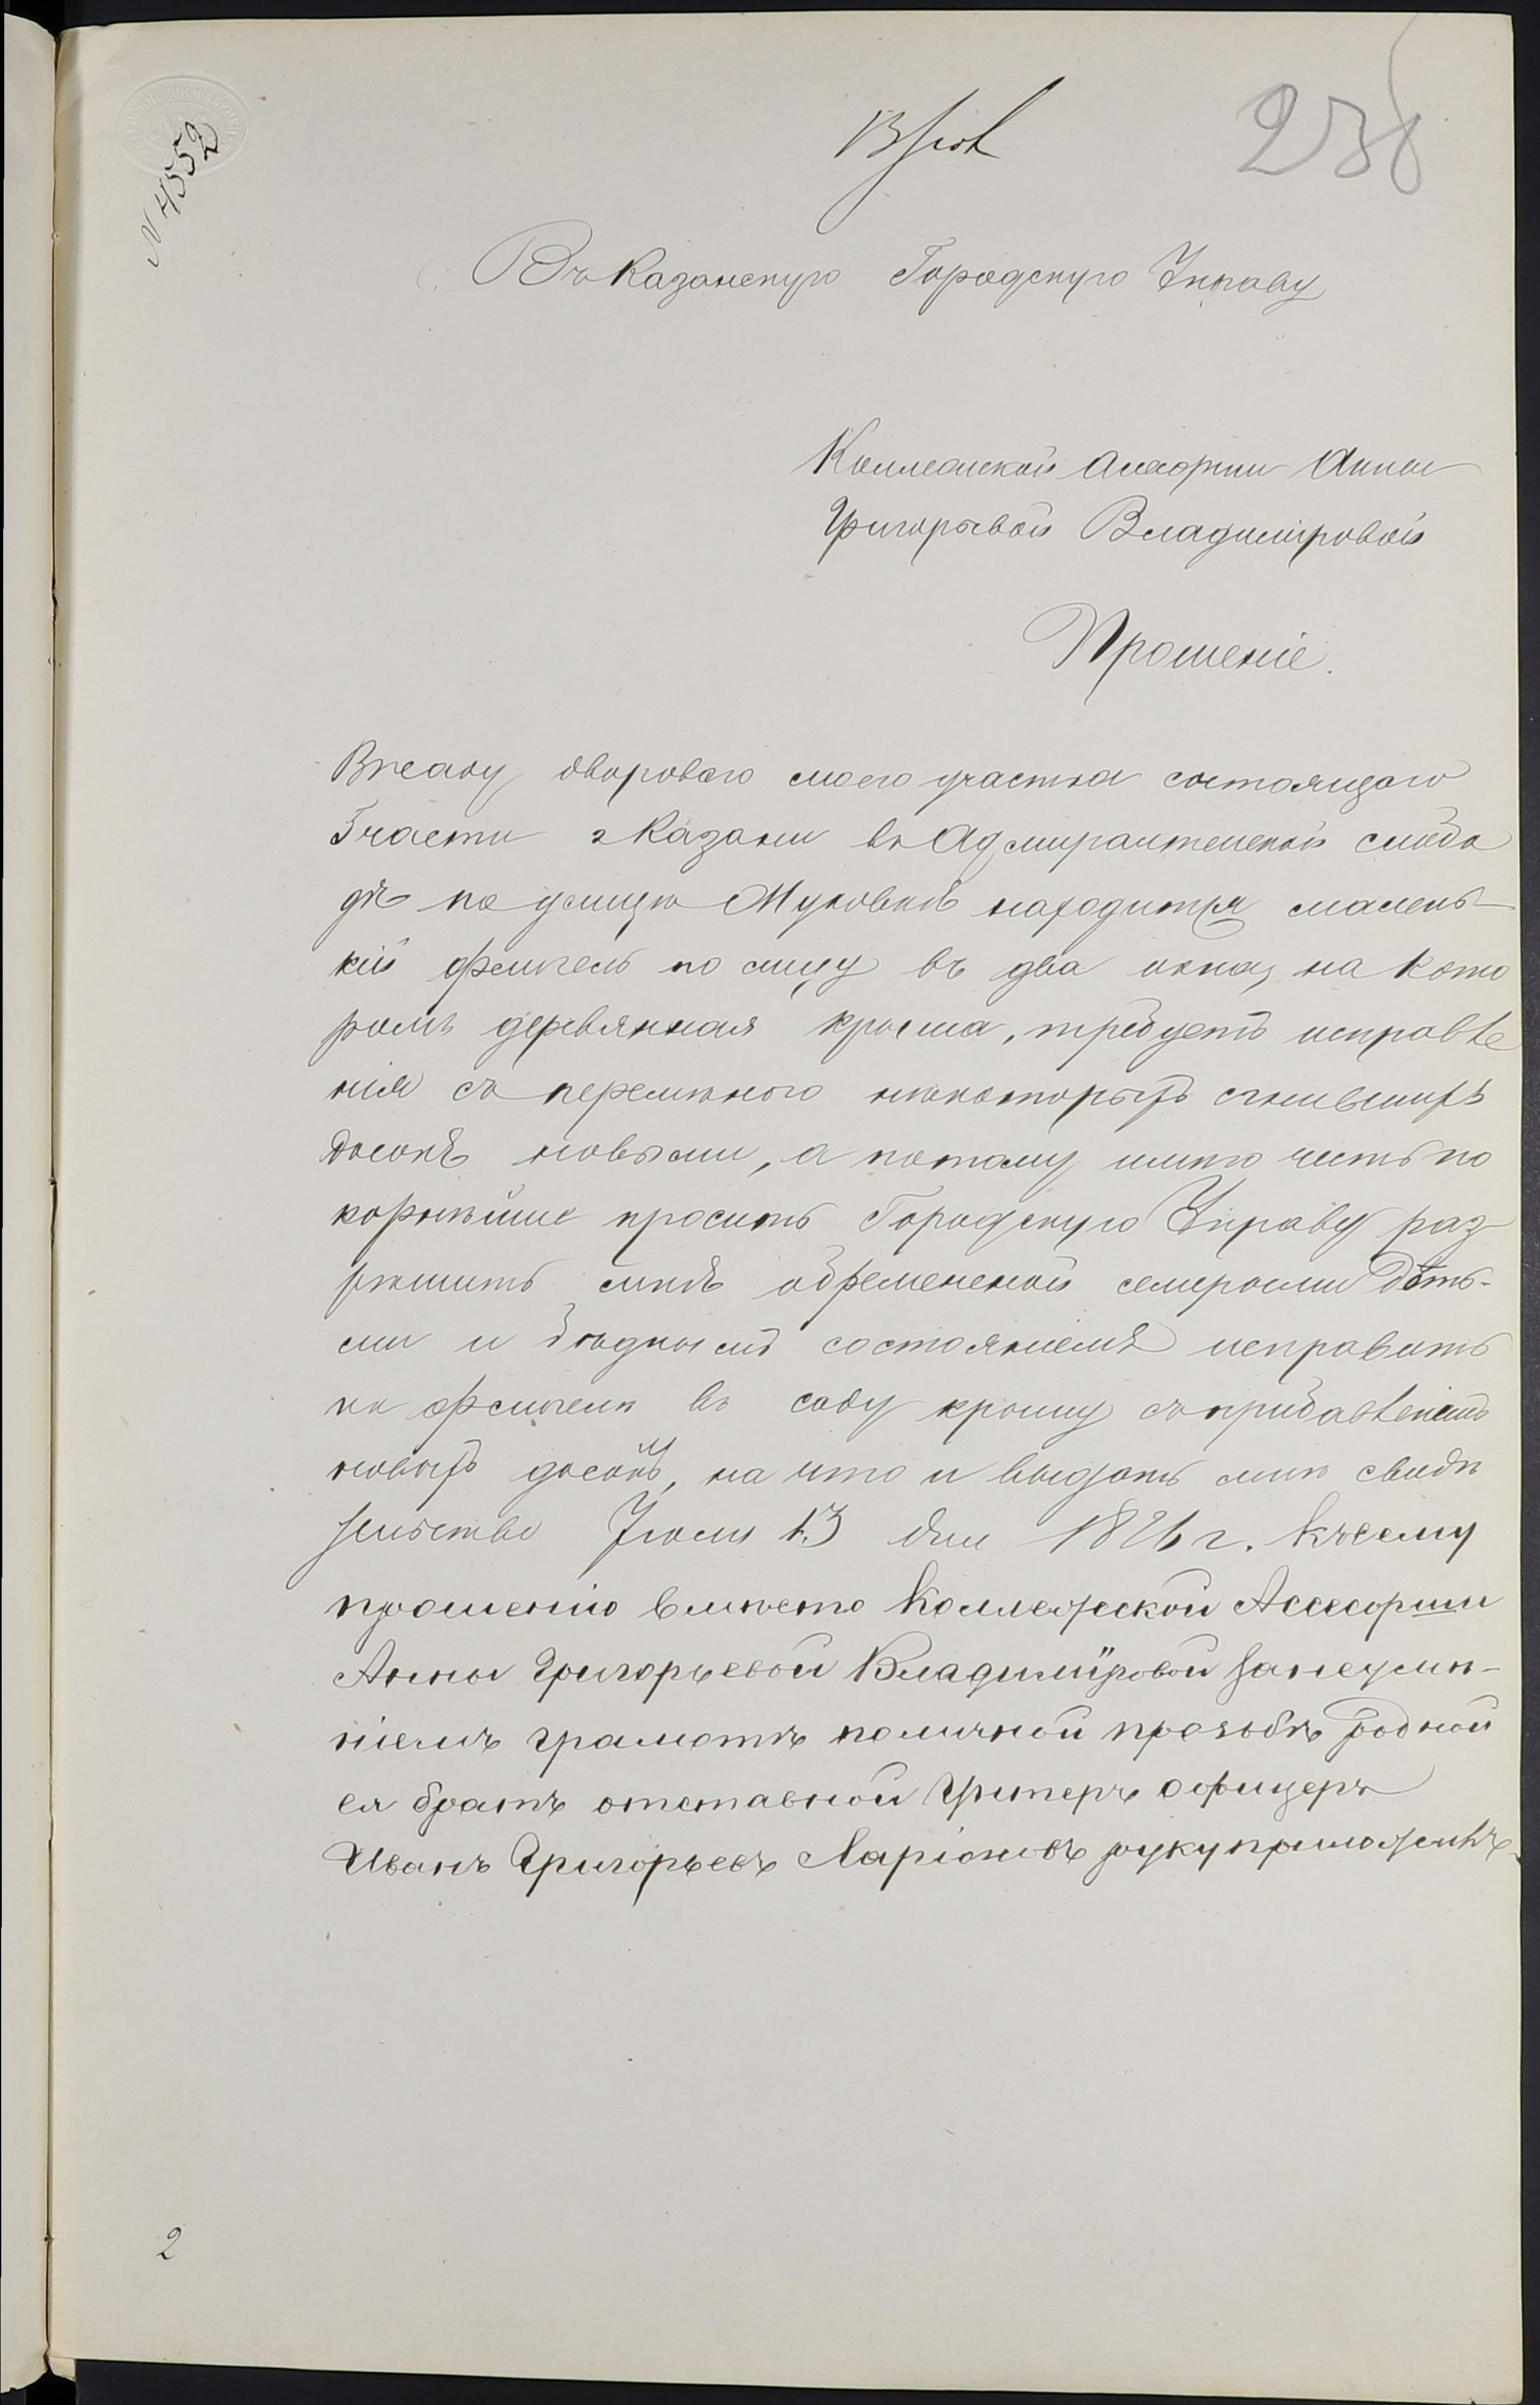 № 4552
238
Въ Казанскую Городскую Управу
Коллежской Ассесорши Анны
Григорьевой Владиміровой
Прошеніе.
В саду двороваго моего участка состоящаго
5 части г Казани въ Адмиралтейской слобо
дѣ по улицѣ Муковкѣ находится малень-
кій флигель по лицу въ два окна, на кото
ромъ деревянная крыша, требуетъ исправле
нія съ перемѣною нѣкоторыхъ сгнившихъ
досокъ новыми, а потому имѣю честь по
корнѣйше просить Городскую Управу раз
рѣшить мнѣ обремененой семерыми дѣть-
ми и бѣднымъ состояніемъ исправить
на флигелѣ въ саду крышу съ прибавленіемъ
новыхъ досокъ, на что и выдать мнѣ свидѣ
тельство Іюля 13 дня 1876 г. Къ сему
прошенію вмѣсто Коллежской Ассесорши
Анны Григорьевой Владиміровой за неумѣ-
ніемъ грамотѣ по личной прозьбѣ родной
ея братъ отставной Унтеръ офицеръ
Иванъ Григорьевъ Ларіоновъ руку приложилъ.
2